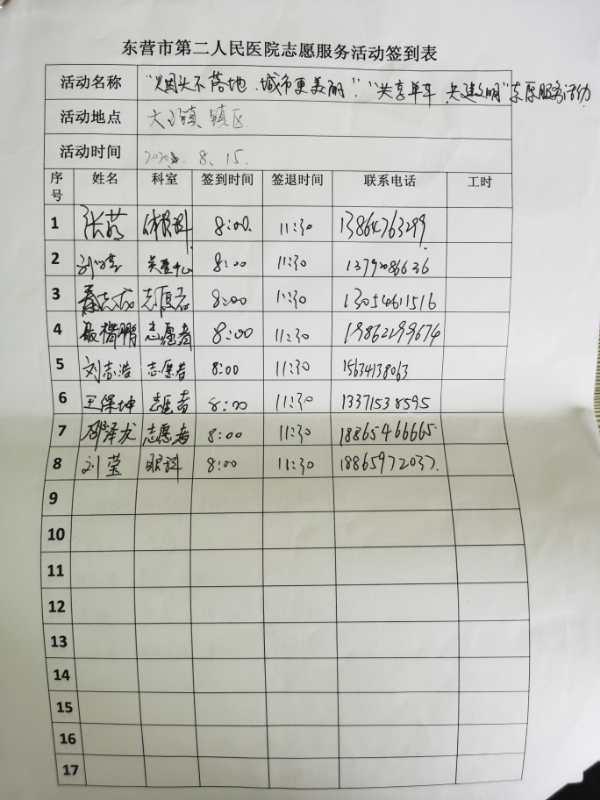 东营市第二人民医院志愿服务活动签到表
活动名称 “烟头不落地 城市更美丽”“共享单车 共建文明”志愿服务活动
活动地点 大王镇 镇区
活动时间 8.15.
序号 姓名 科室 签到时间 签退时间 联系电话 工时
1 张 8:00 11:30 13864763299
2 刘 8:00 11:30 1379086636
3 秦志 志愿者 8:00 11:30 13054611516
4 鹏 志愿者 8:00 11:30 19862199674
5 刘志浩 志愿者 8:00 11:30 15634138063
6 王保坤 志愿者 8:00 11:30 13371538595
7 邵泽龙 志愿者 8:00 11:30 18865466665
8 刘莹 眼科 8:00 11:30 18865972037.
9
10
11
12
13
14
15
16
17